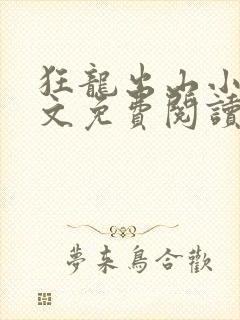 狂龍出山小
文免費閱讀
夢來鳥合歡